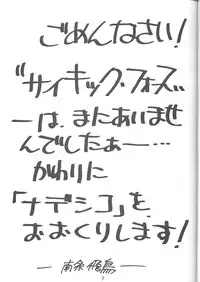 ごめんなさい!
"サイキック・フォース"
ーは、まにあいませ
んでしたぁー…
かわりに
「ナデシコ」を、
おおくりします!
ー南条飛鳥ー